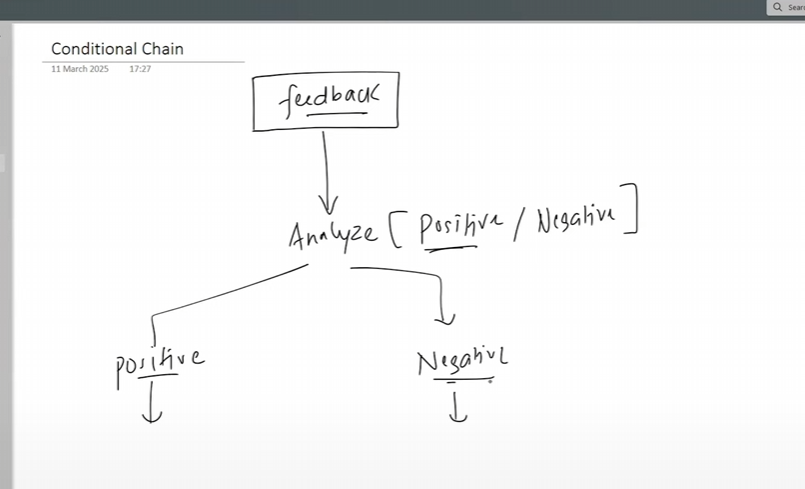 Sear
Conditional Chain
11 March 2025 17:27
feedback
Analyze [ Positive / Negative ]
positive
Negative